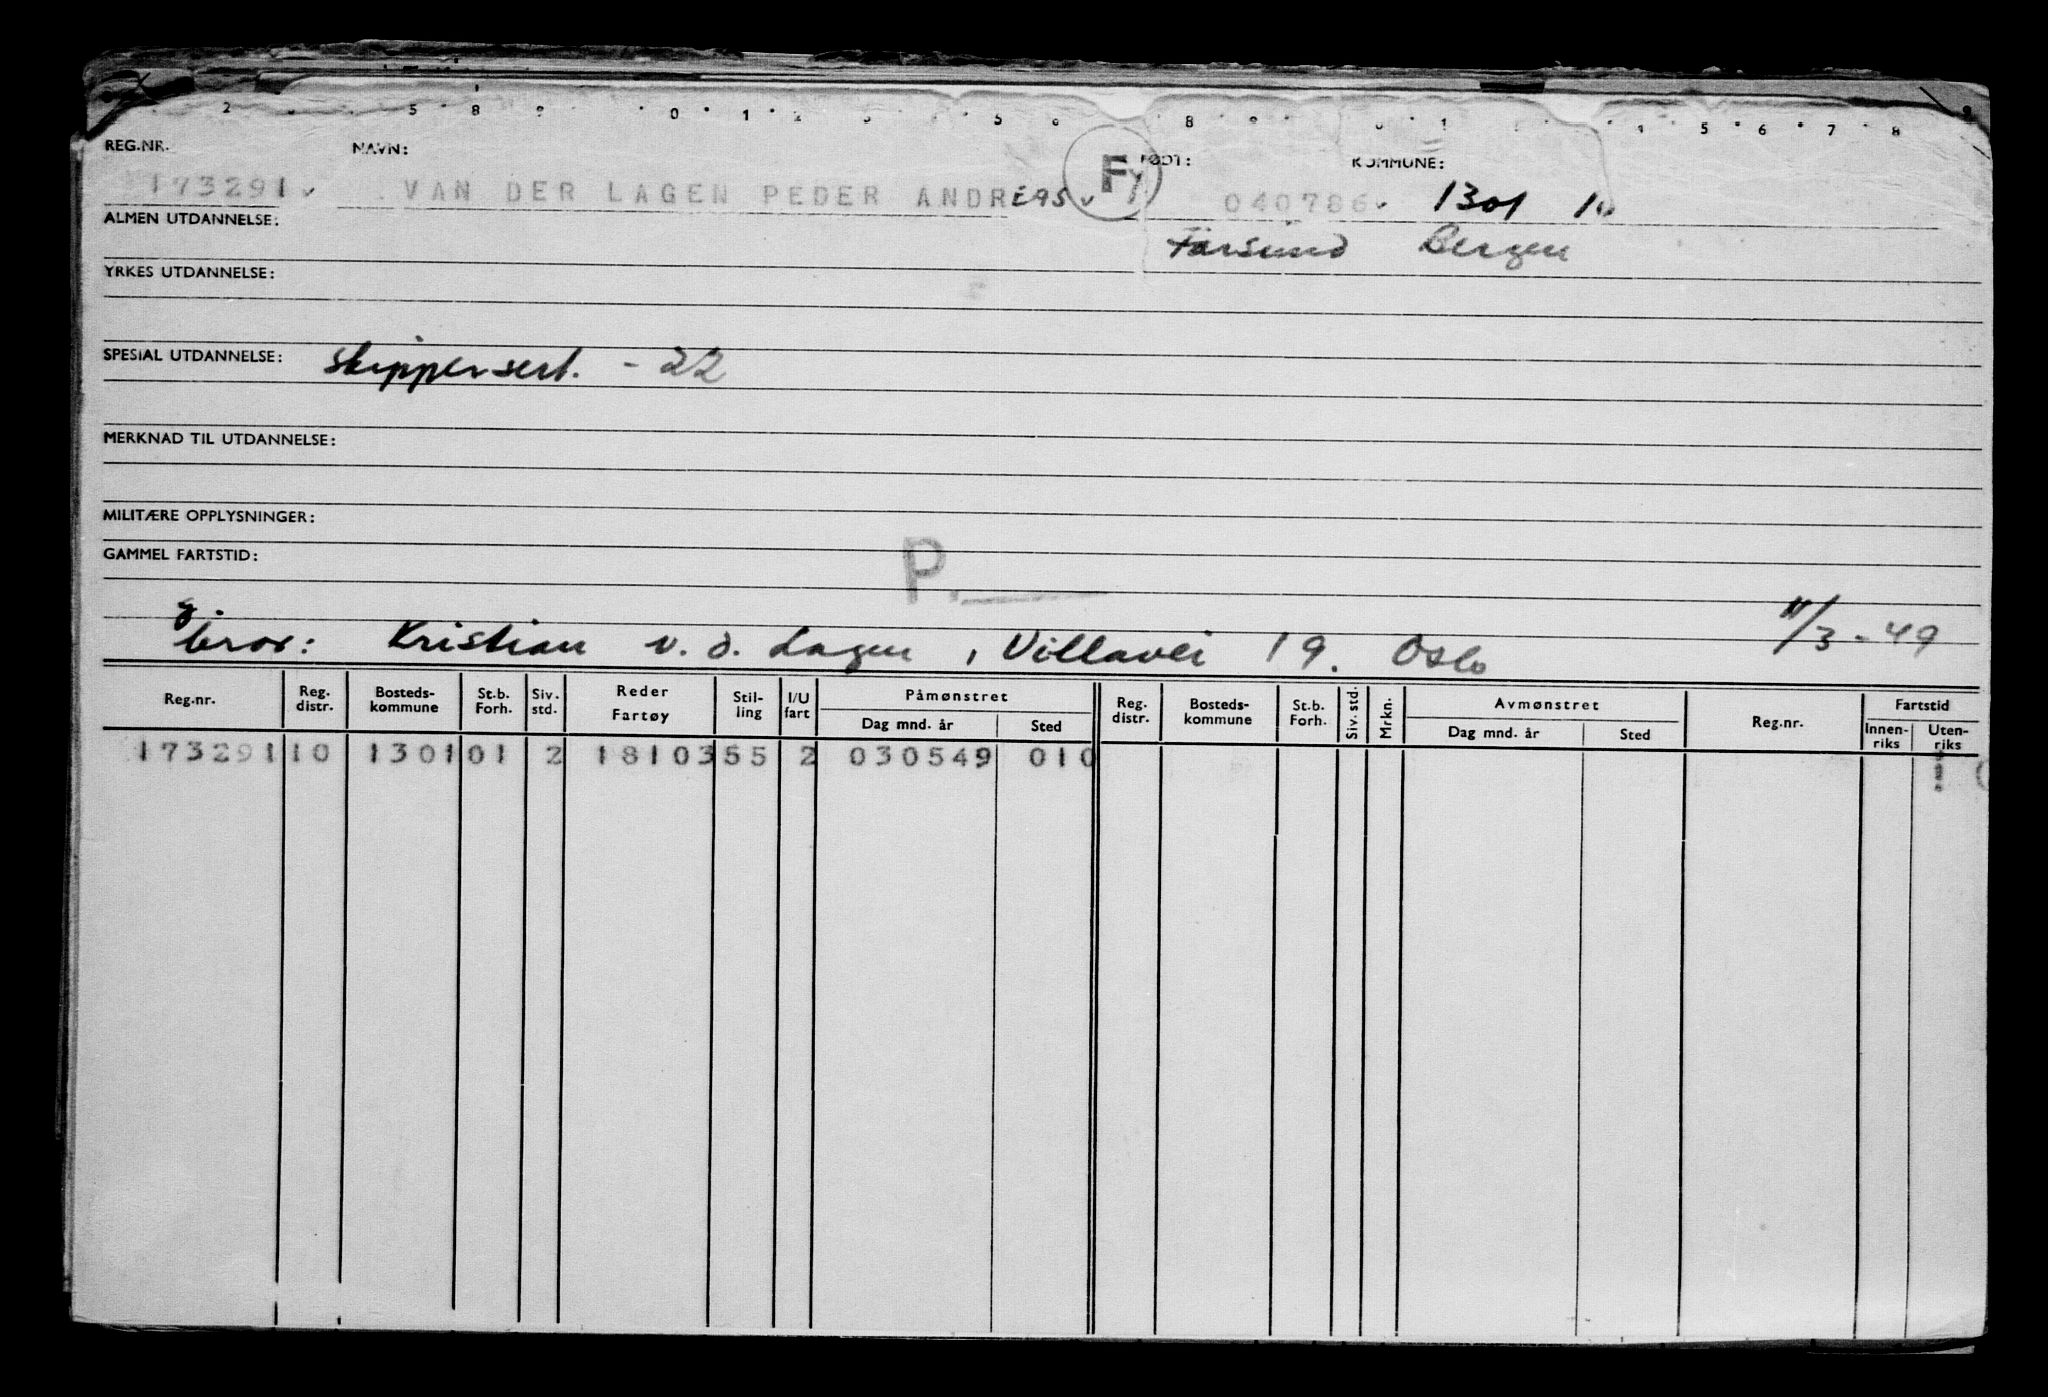 REG.NR. NAVN: FØDT: KOMMUNE:
173291 VAN DER LAGEN PEDER ANDREAS F 040786 1301 10
ALMEN UTDANNELSE: Farsund Bergen
YRKES UTDANNELSE:
SPESIAL UTDANNELSE: skippersert. - 22
MERKNAD TIL UTDANNELSE:
MILITÆRE OPPLYSNINGER:
GAMMEL FARTSTID:
P.
g.
bror: Kristian v. d. Lagen, Villavei 19. Oslo 11/3 - 49
Reg.nr. Reg. distr. Bosteds-kommune St.b. Forh. Siv. std. Reder Fartøy Stil-ling I/U fart Påmønstret Dag mnd. år Sted Reg. distr. Bosteds-kommune St.b. Forh. Siv. std. Mrkn. Avmønstret Dag mnd. år Sted Reg.nr. Fartstid Innen-riks Uten-riks
173291 10 1301 01 2 18103 55 2 030549 010